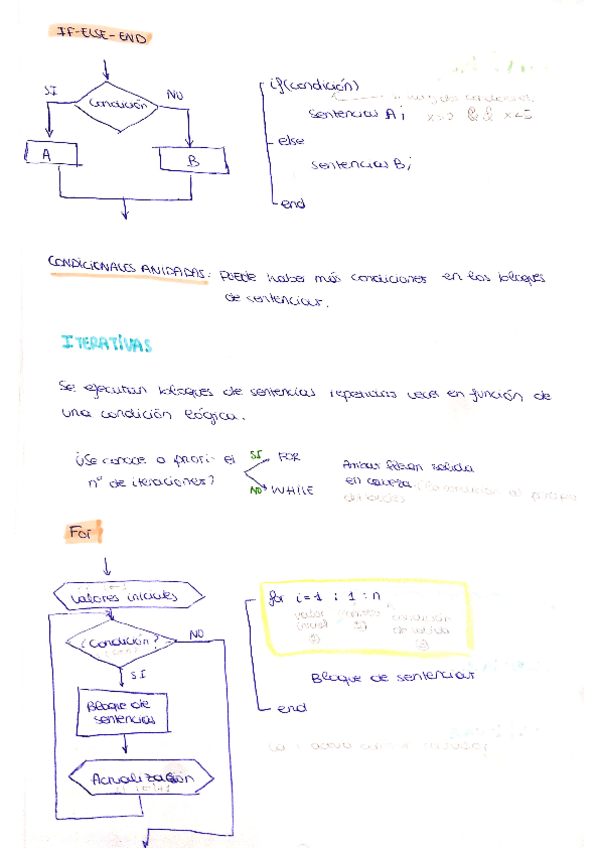 IF-ELSE-END
SI
NO
Condición
A
B
if(condición)
sentencias A;
x>0 && x<5
else
sentencias B;
end
CONDICIONALES ANIDADAS: Puede haber más condiciones en los bloques
de sentencias.
ITERATIVAS
Se ejecutan bloques de sentencias repetidas veces en función de
una condición lógica.
¿Se conoce a priori el
nº de iteraciones?
SI FOR
NO WHILE
Ambas salida
en cabeza
For
Valores iniciales
¿Condición?
NO
SI
Bloque de
sentencias
Actualización
for i=1 : 1 : n
valor
inicial
condición
de salida
Bloque de sentencias
end